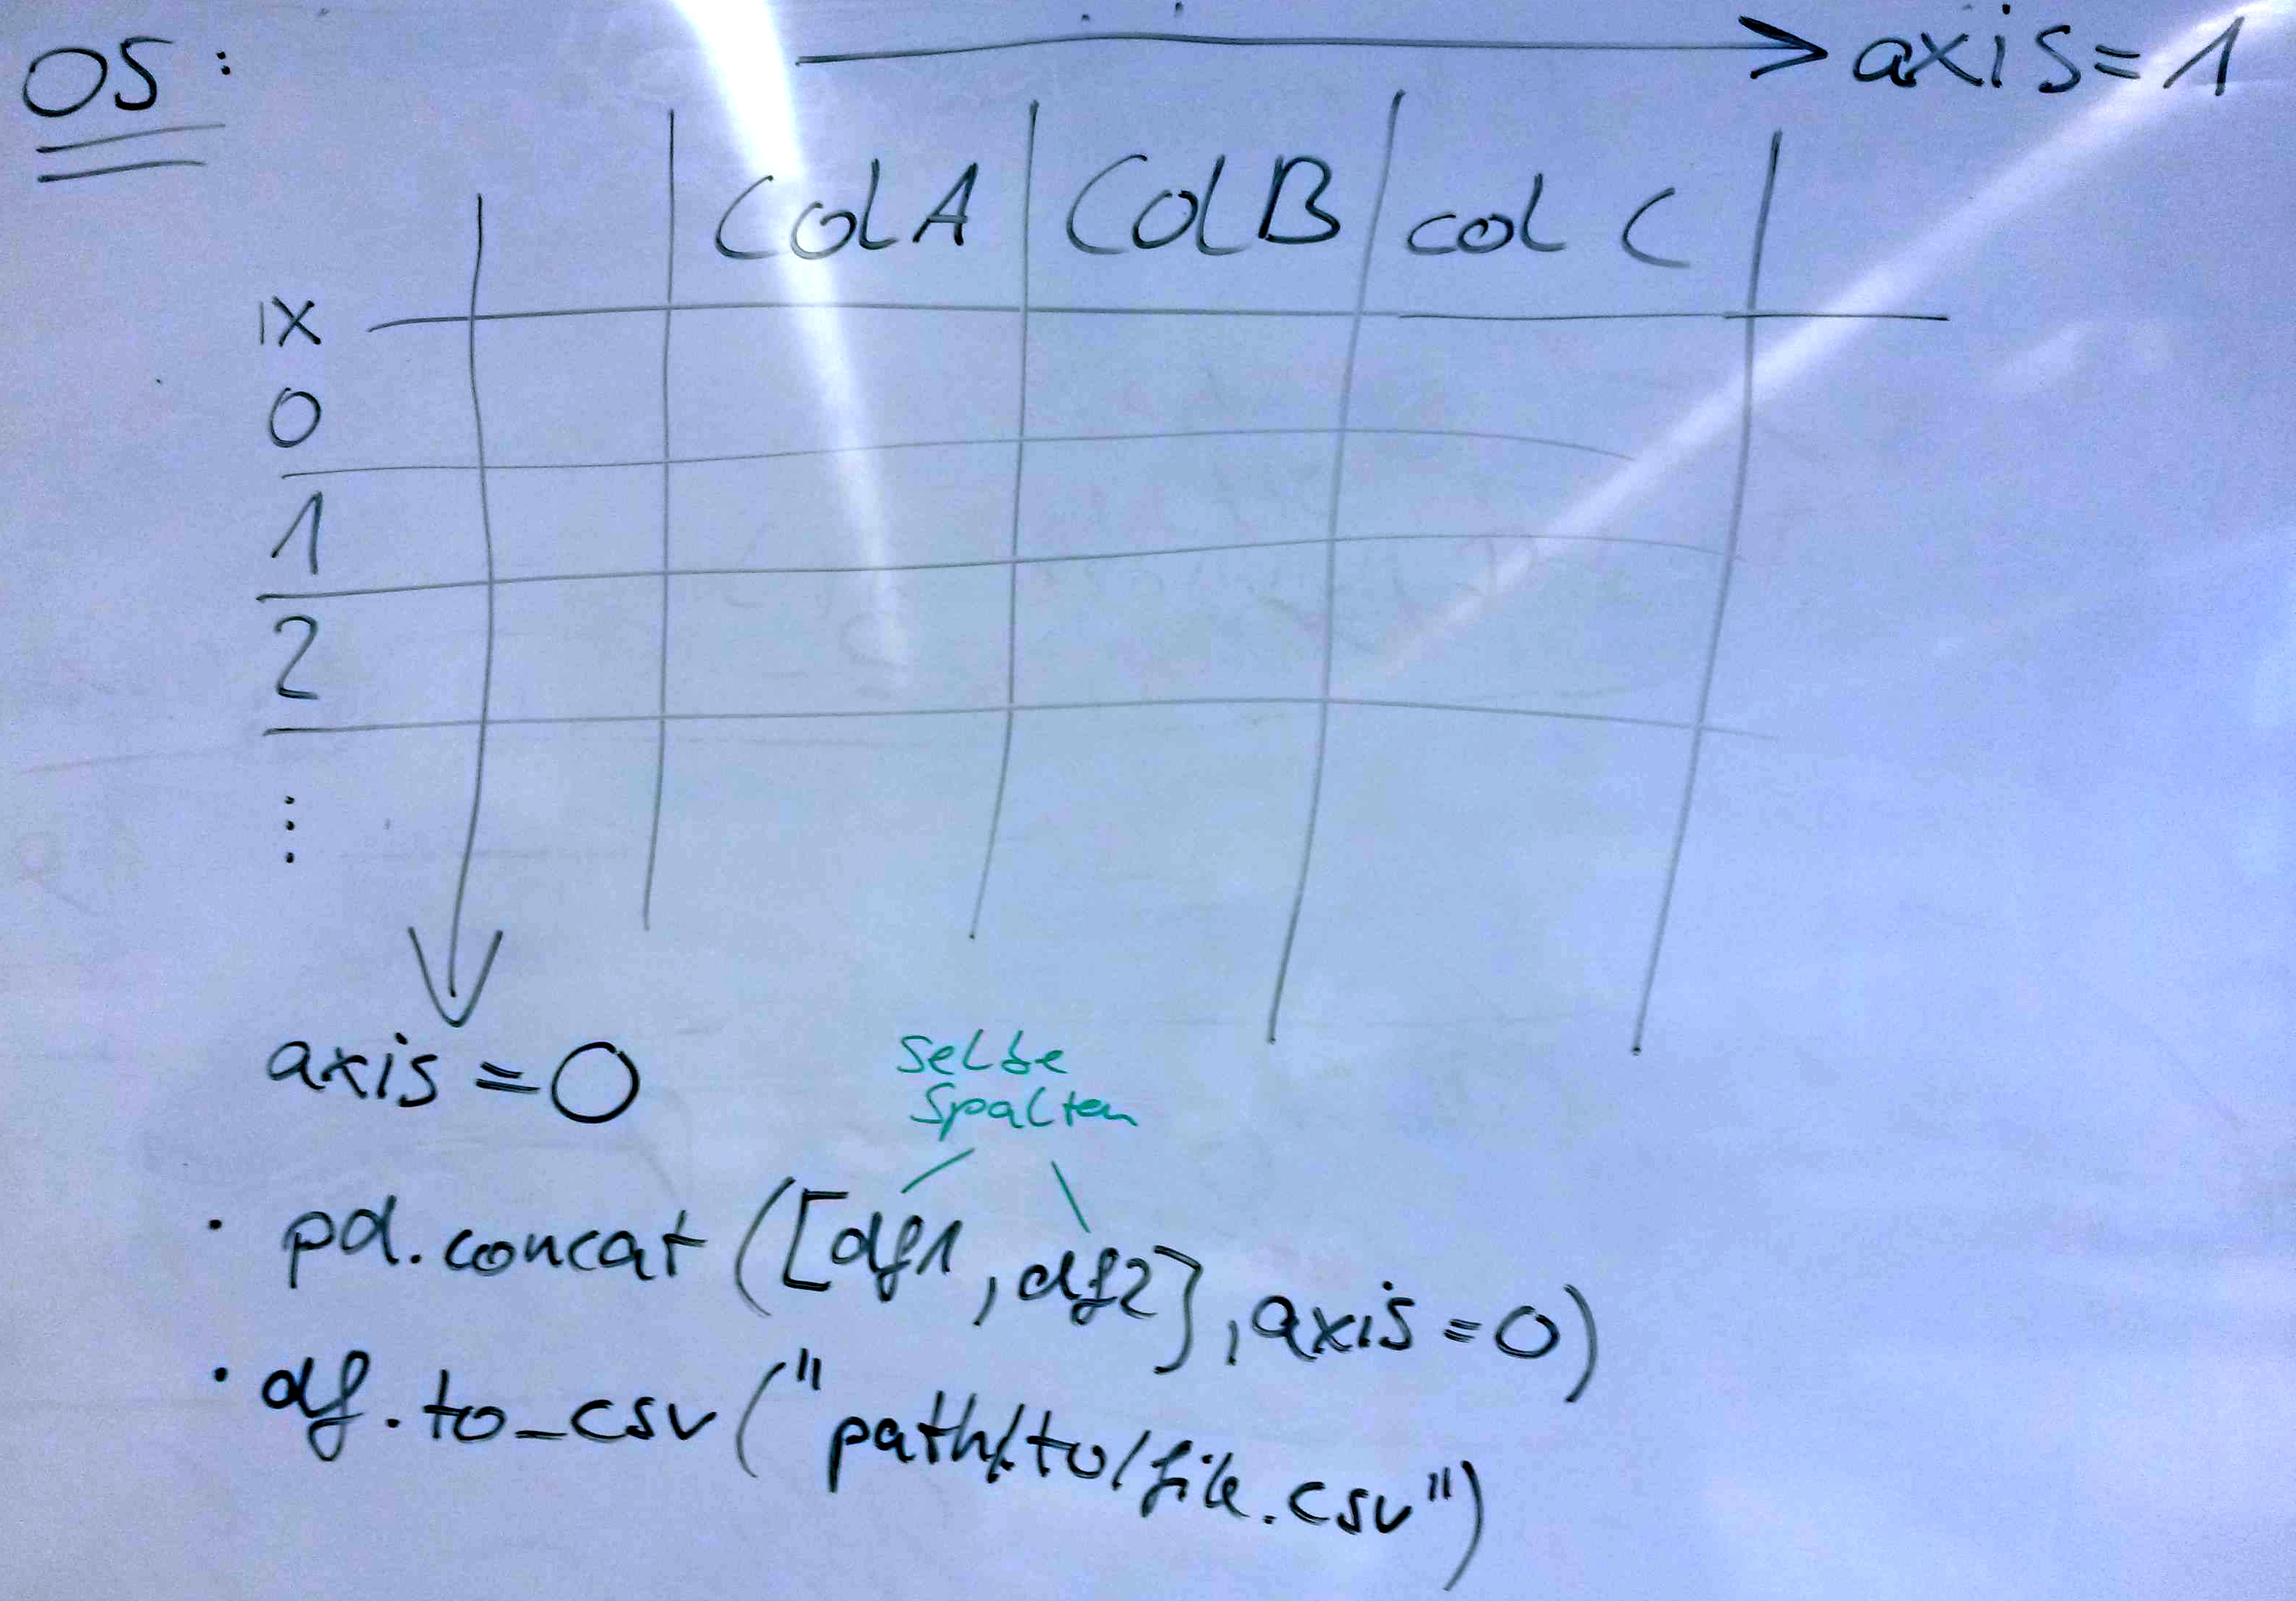 OS:
axis=1
Col A Col B col C
IX
0
1
2
⋮
axis=0
selbe
Spalten
· pd.concat([df1, df2], axis=0)
· df.to_csv("path/to/file.csv")